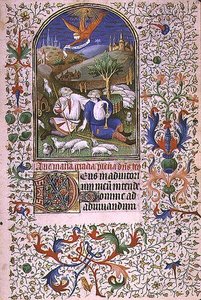 Aue maria gracia plena dns tec
Deus in adiutori
um meum intende
Domine ad
adiuuandum